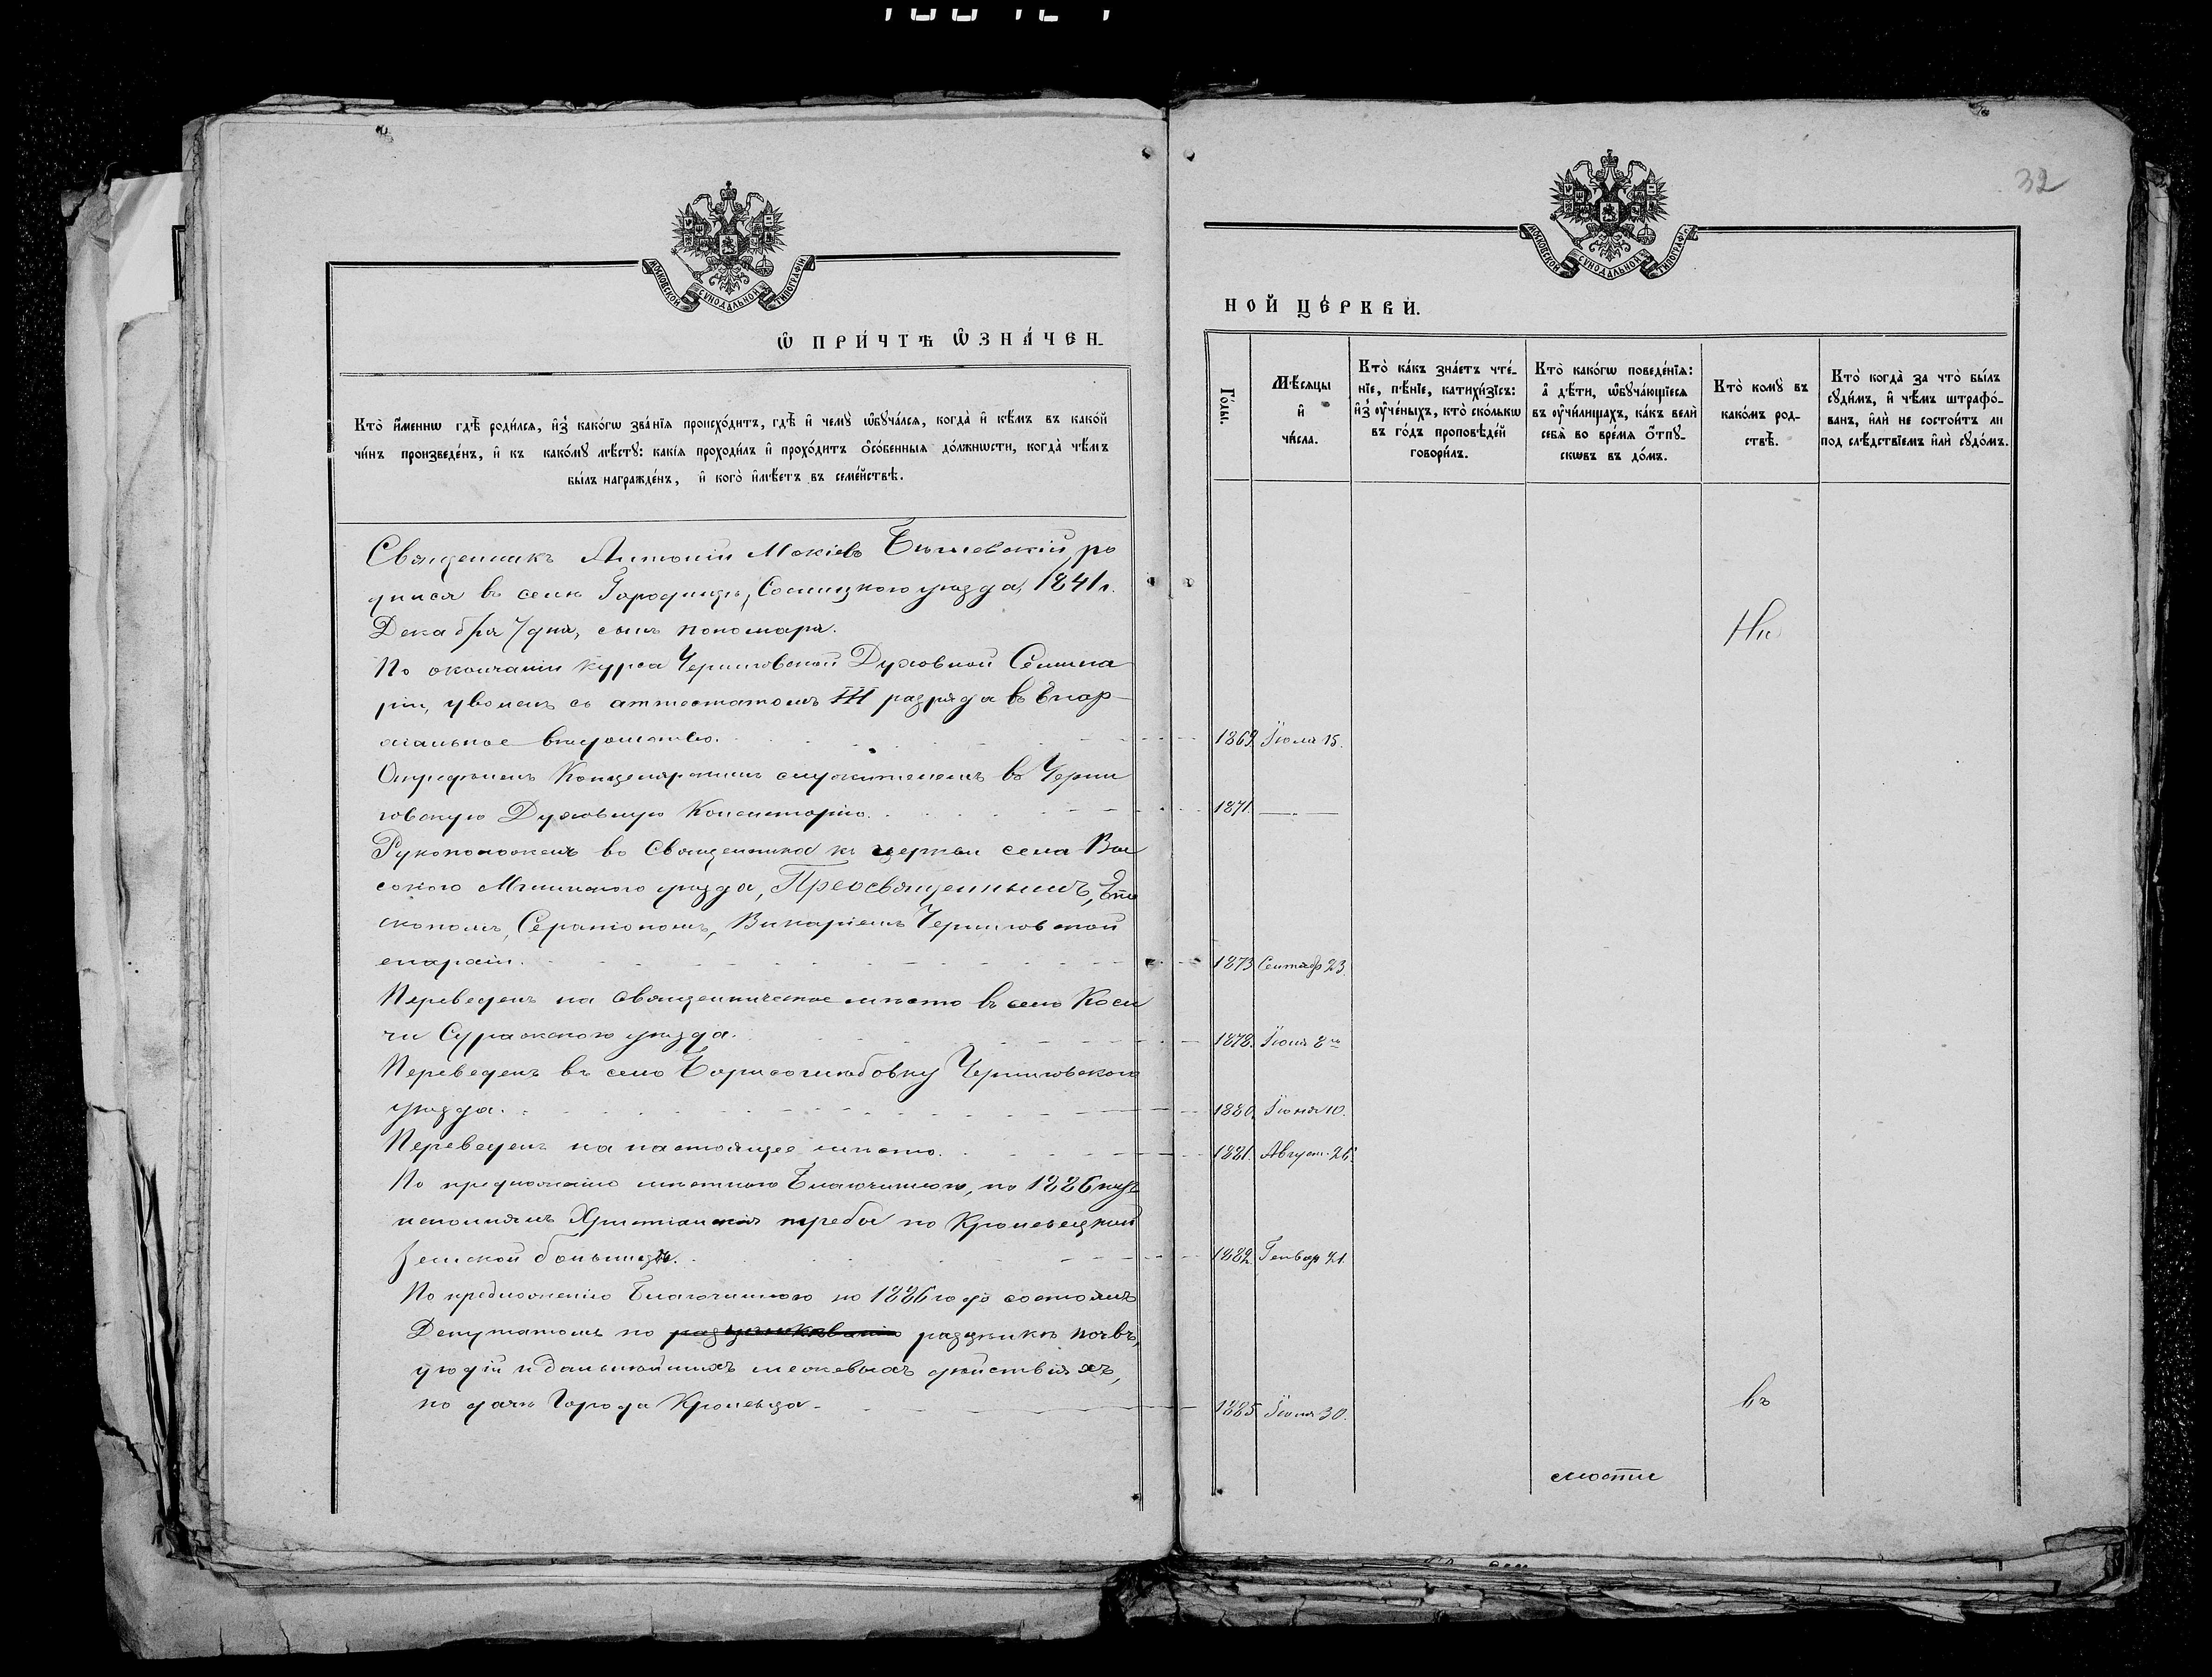 Ѡ ПРИ́ЧТѢ ѠЗНА́ЧЕН-
Кто̀ и҆́меннѡ гдѣ̀ роди́лсѧ, и҆з̾ како́гѡ зва́нїѧ происхо́дитъ, гдѣ̀ и҆ чему̀ ѡ҆буча́лсѧ, когда̀ и҆ кѣ́мъ въ како́й
чи́нъ произведе́нъ, и҆ къ како́му мѣ́сту: какі́ѧ проходи́лъ и҆ прохо́дитъ ѻ҆со́бенныѧ до́лжнѡсти, когда̀ чѣ́мъ
бы́лъ награжде́нъ, и҆ кого̀ и҆мѣ́етъ въ семе́йствѣ.
Священникъ Антоній Мокіевъ ро
дился въ селѣ Городищѣ, Сосницкого уѣзда, 1841 г.
Декабря 7 дня, сынъ пономаря.
По окончаніи курса Черниговской Духовной Семина
ріи, уволенъ съ аттестатомъ III разряда въ Епар-
хіальное вѣдомство.
Опредѣленъ Канцелярскимъ служителемъ въ Черни
говскую Духовную Консисторію.
Рукоположенъ во Священника къ церкви села Вы
сокого Мглинского уѣзда, Преосвященнымъ, Епи
скопомъ, Серапіономъ, Викаріемъ Черниговской
епархіи.
Переведенъ на священническое мѣсто въ село Коси
чи Суражского уѣзда.
Переведенъ въ село Борисоглюбовку Черниговского
уѣзда.
Переведенъ на настоящее мѣсто.
По предложенію мѣстного Благочинного, по 1886 годъ
исполнялъ Христіанскія требы по Кролевецкой
Земской больницѣ.
По предложенію Благочинного по 1886 годъ состоялъ
Депутатомъ по разцѣнкѣ почвъ,
угодій и дальнѣйшихъ межевыхъ дѣйствіяхъ,
по дачѣ Города Кролевца.
32
НОЙ ЦЕ́РКВИ.
Го́ды.
Мѣ́сѧцы
и҆
чи́сла.
Кто̀ ка́къ зна́етъ чте́-
нїе, пѣ́нїе, катихи́зїсъ:
и҆з̾ ᲂу҆че́ныхъ, кто̀ ско́лькѡ
въ го́дъ проповѣ́дей
говори́лъ.
Кто̀ како́гѡ поведе́нїѧ:
а҆ дѣ́ти, ѡ҆буча́ющїесѧ
въ ᲂу҆чи́лищахъ, ка́къ велѝ
себѧ̀ во вре́мѧ ѿпу-
скѡвъ въ до́мъ.
Кто̀ кому̀ въ
како́мъ род-
ствѣ̀.
Кто̀ когда̀ за что̀ бы́лъ
суди́мъ, и҆ чѣ́мъ штрафо́-
ванъ, и҆лѝ не состои́тъ ли
под слѣ́дствїемъ и҆лѝ судо́мъ.
Ни
1869. Іюля 15.
1871.
1873 Сентябр 23.
1878. Іюня 8го
1880. Іюня 10.
1881. Август. 26.
1882. Генвар 21.
1885 Іюня 30.
въ
МОСКОВСКОЙ СѴНОДАЛЬНОЙ ТИПОГРАФІИ
МОСКОВСКОЙ СѴНОДАЛЬНОЙ ТИПОГРАФІ С.